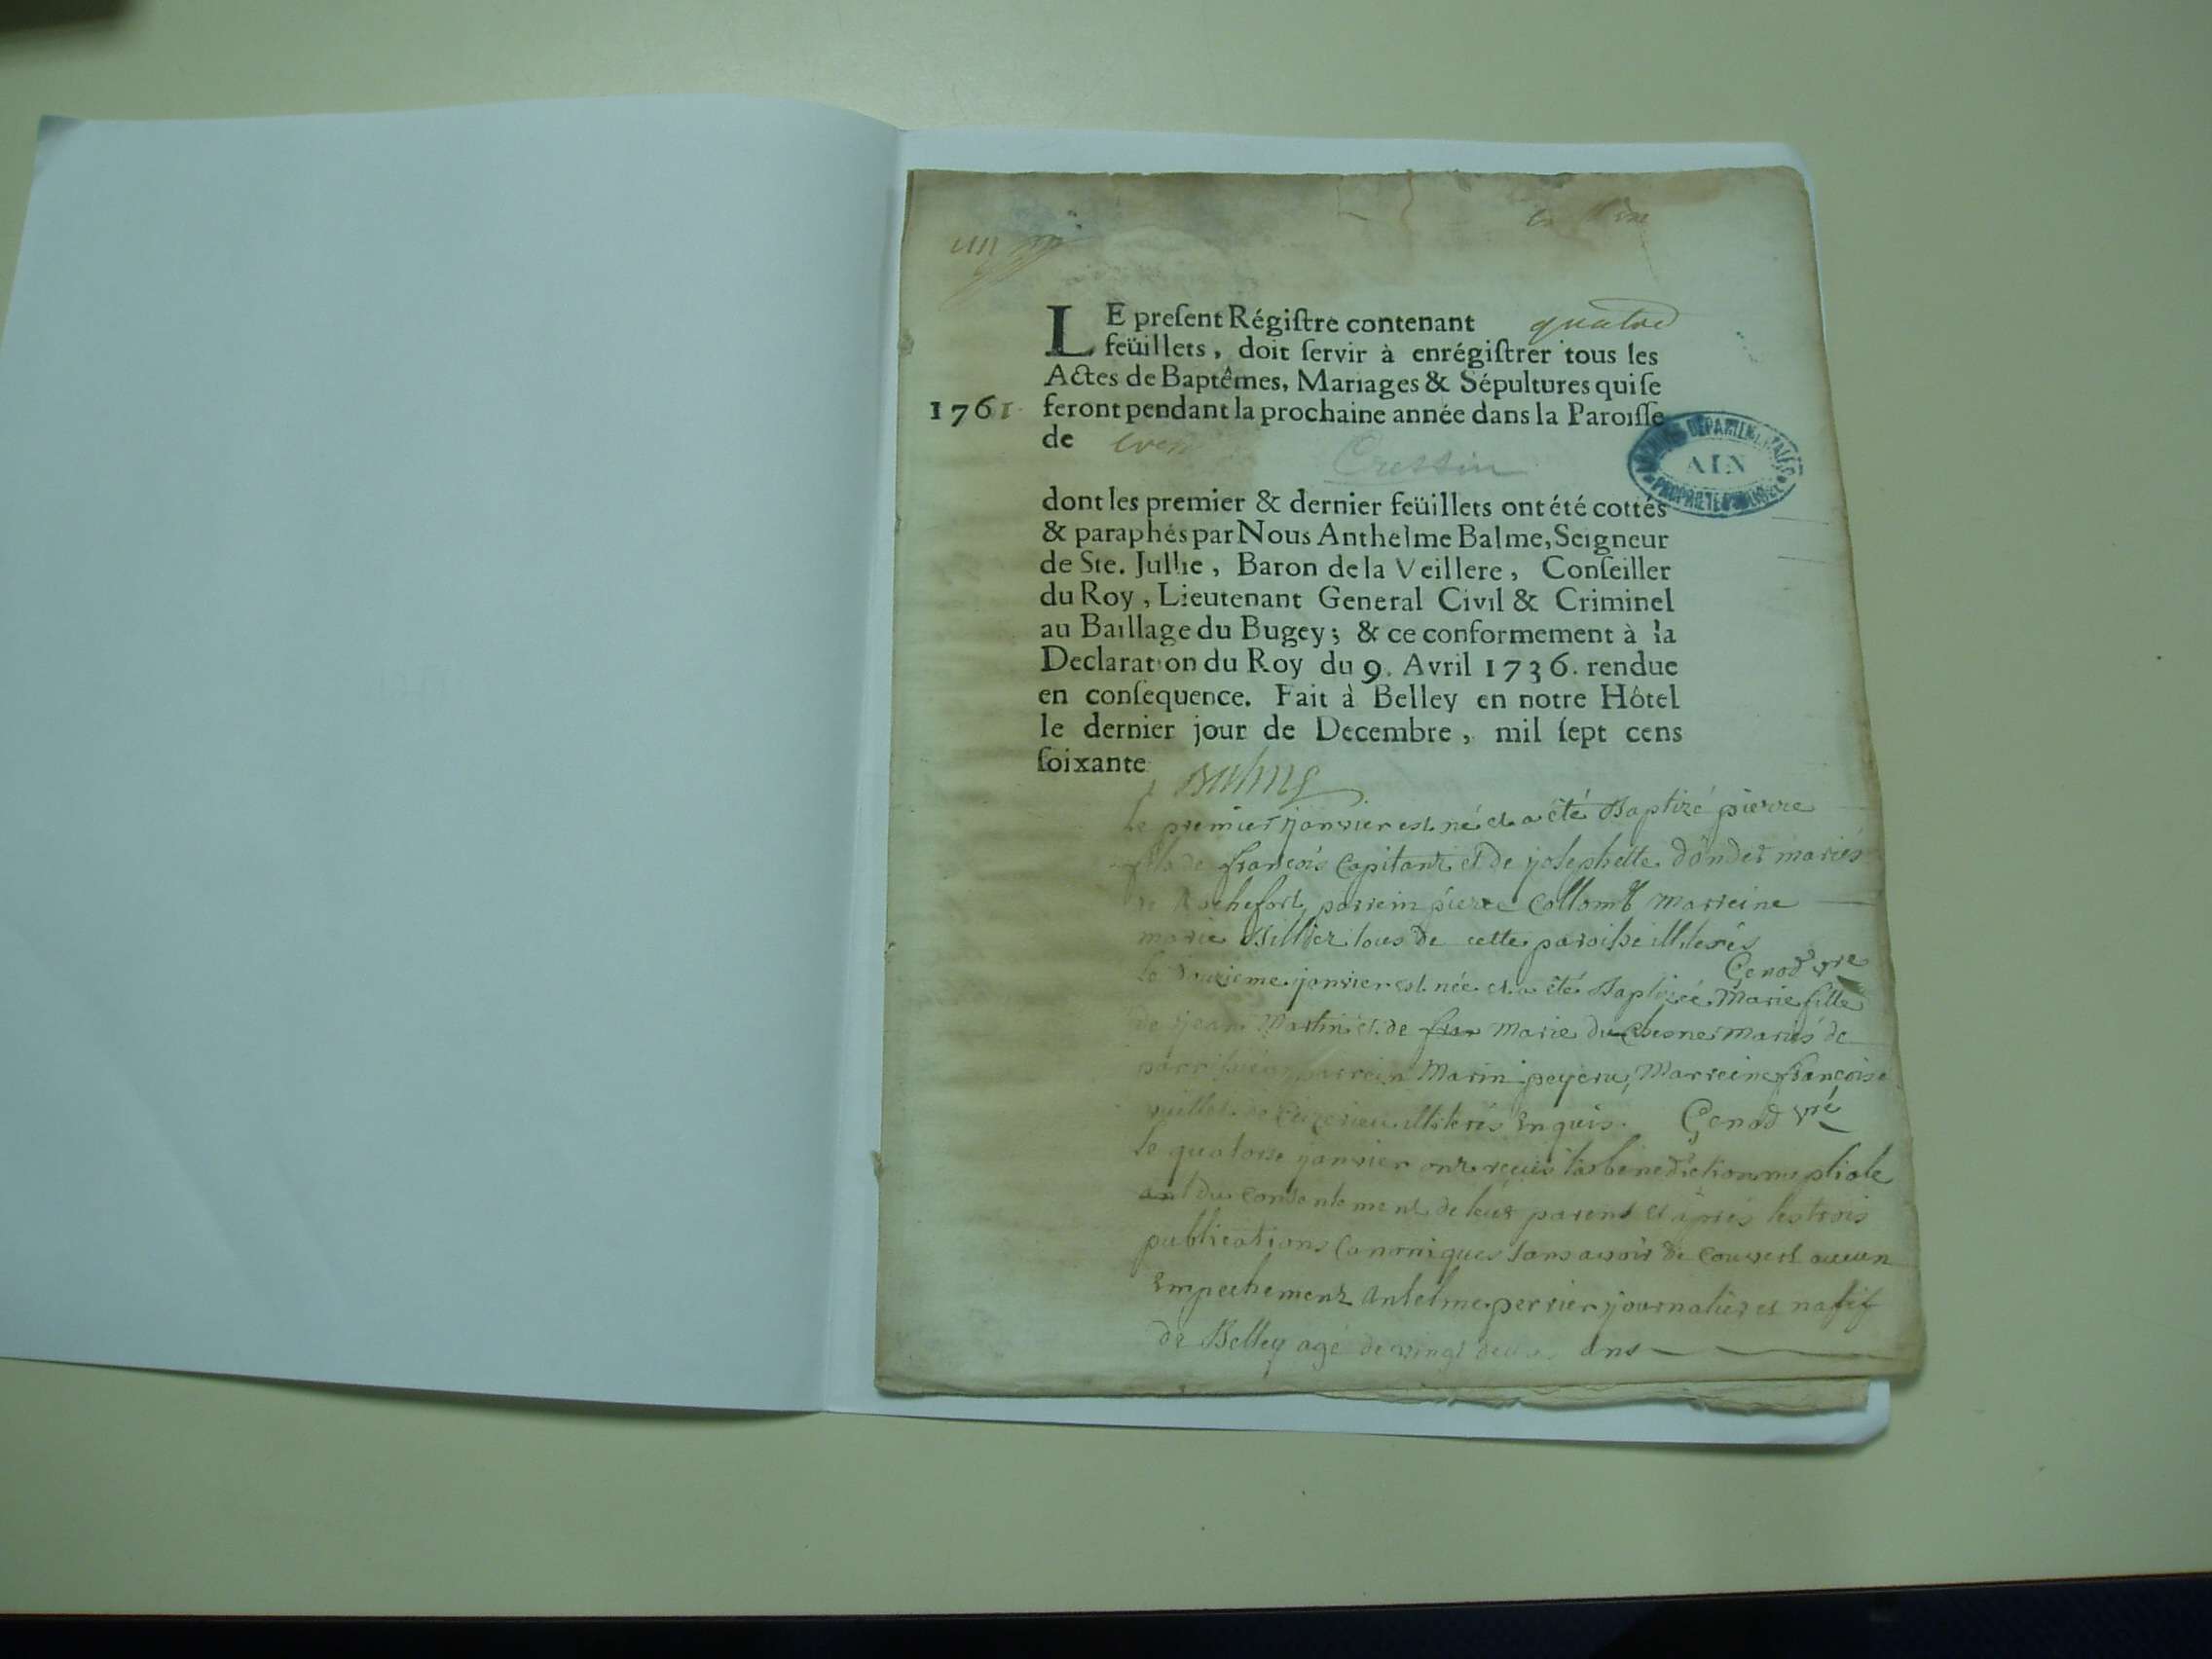 LE preſent Régiſtre contenant quatre
feüillets, doit ſervir à enrégiſtrer tous les
Actes de Baptêmes, Mariages & Sépultures qui ſe
1761 feront pendant la prochaine année dans la Paroiſſe
de Cressin
ARCHIVES DEPARTEMENTALES
AIN
PROPRIETE PUBLIQUE
dont les premier & dernier feüillets ont été cottés
& paraphés par Nous Anthelme Balme, Seigneur
de Ste. Jullie, Baron de la Veillere, Conſeiller
du Roy, Lieutenant General Civil & Criminel
au Baillage du Bugey; & ce conformement à la
Declaration du Roy du 9. Avril 1736. rendue
en conſequence. Fait à Belley en notre Hôtel
le dernier jour de Decembre, mil ſept cens
ſoixante
Balme
Le premier janvier est né et a été Baptizé pierre
fils de françois Capitant et de josephette dondet mariés
de Rochefort, parrein pierre Collomb marreine
marie tous de cette paroisse illiterés
Genod vre
Le douzieme janvier est née et a été Baptizée Marie fille
de jean Martin et de fran Marie du Chesne mariés de
parrein Marin peyeru, Marreine françoise
illiterés Enquis. Genod vre
le quatorse janvier ont reçus la benediction nuptiale
ant du consentement de leur parens et après les trois
publications Canoniques sans avoir decouvert aucun
Empechement antelme perrier journalier et natif
de Belley agé de vingt deux ans